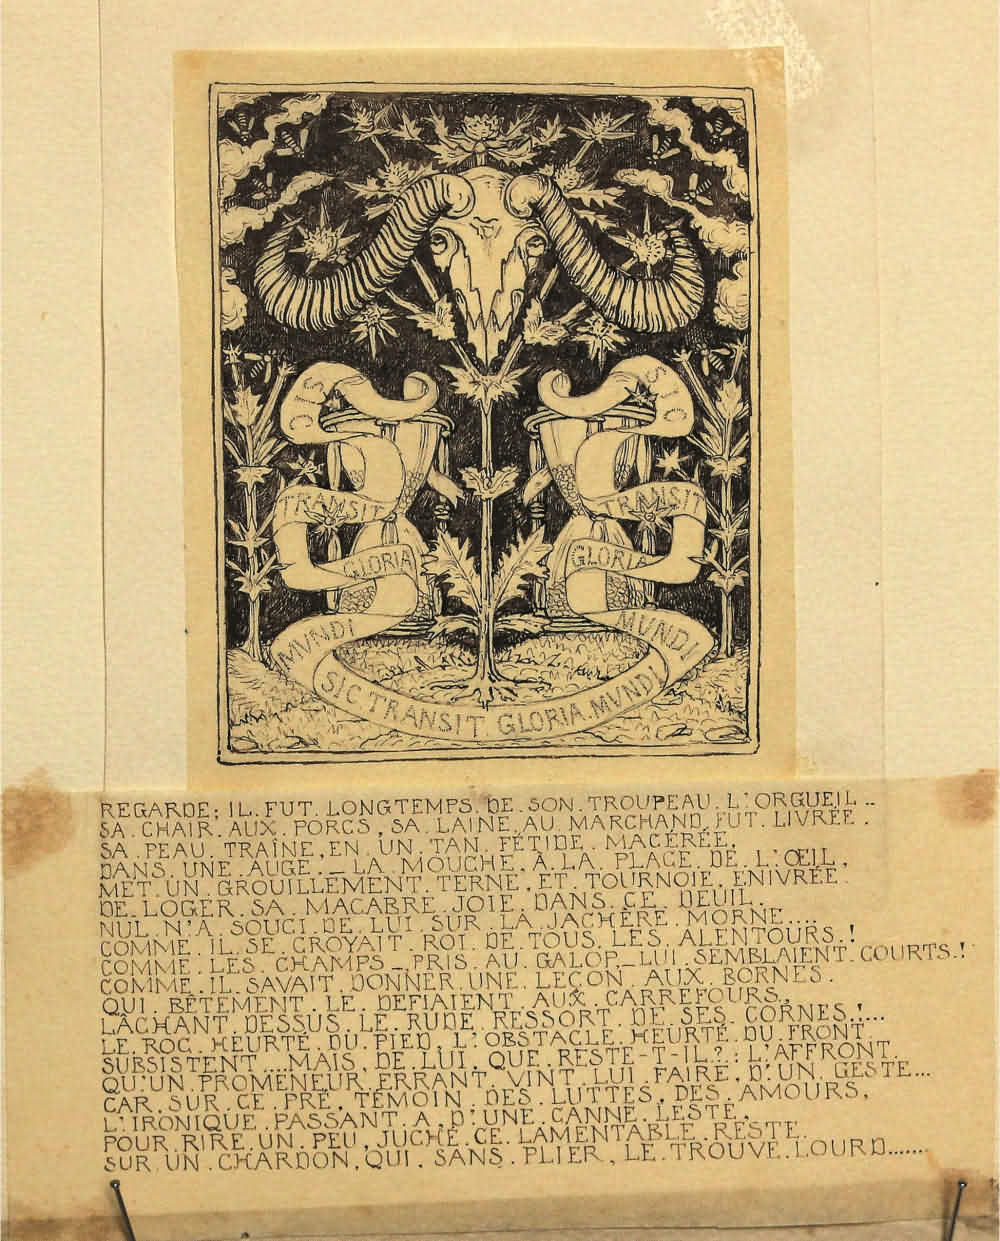 SIC
SIC
TRANSIT
TRANSIT
GLORIA
GLORIA
MVNDI
MVNDI
SIC. TRANSIT. GLORIA. MVNDI
REGARDE; IL. FUT. LONGTEMPS. DE. SON. TROUPEAU. L'ORGUEIL ..
SA. CHAIR. AUX. PORCS, SA. LAINE. AU. MARCHAND. FUT. LIVRÉE.
SA. PEAU. TRAÎNE, EN. UN. TAN. FÉTIDE. MACÉRÉE,
DANS. UNE. AUGE. _ LA. MOUCHE, À. LA. PLACE. DE. L'ŒIL,
MET. UN. GROUILLEMENT. TERNE, ET. TOURNOIE, ENIVRÉE.
DE. LOGER. SA. MACABRE. JOIE. DANS. CE. DEUIL.
NUL. N'A. SOUCI. DE. LUI. SUR. LA. JACHÈRE. MORNE....
COMME. IL. SE. CROYAIT. ROI. DE. TOUS. LES. ALENTOURS.!
COMME. LES. CHAMPS _ PRIS. AU. GALOP _ LUI. SEMBLAIENT. COURTS.!
COMME. IL. SAVAIT. DONNER. UNE. LEÇON. AUX. BORNES.
QUI. BÊTEMENT. LE. DEFIAIENT. AUX. CARREFOURS,
LÂCHANT. DESSUS. LE. RUDE. RESSORT. DE. SES. CORNES.!...
LE. ROC. HEURTÉ. DU. PIED, L'OBSTACLE. HEURTÉ. DU. FRONT.
SUBSISTENT ... MAIS. DE. LUI. QUE. RESTE-T-IL?. L'AFFRONT.
QU'UN. PROMENEUR. ERRANT. VINT. LUI. FAIRE, D'UN. GESTE...
CAR. SUR. CE. PRÉ, TÉMOIN. DES. LUTTES, DES. AMOURS,
L'IRONIQUE. PASSANT. A, D'UNE. CANNE. LESTE,
POUR. RIRE. UN. PEU, JUCHÉ. CE. LAMENTABLE. RESTE.
SUR. UN. CHARDON, QUI. SANS. PLIER, LE. TROUVE. LOURD.......